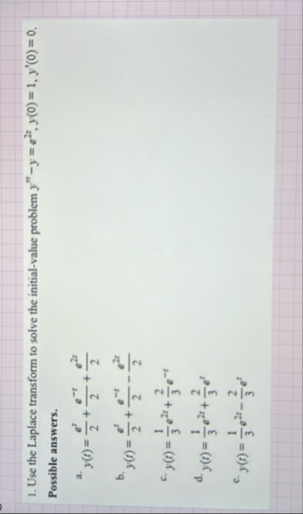 1. Use the Laplace transform to solve the initial-value problem y'' − y = e^{2t}, y(0) = 1, y'(0) = 0.
Possible answers.
a. y(t) = e^t/2 + e^{-t}/2 + e^{2t}/2
b. y(t) = e^t/2 + e^{-t}/2 − e^{2t}/2
c. y(t) = 1/3 e^{2t} + 2/3 e^{-t}
d. y(t) = 1/3 e^{2t} + 2/3 e^t
e. y(t) = 1/3 e^{2t} − 2/3 e^t